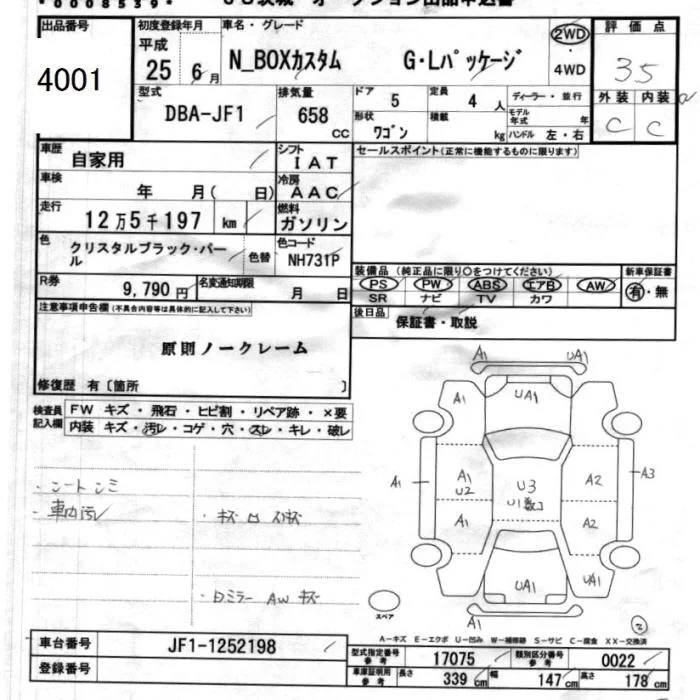 *0008539*
出品番号
4001
初度登録年月
平成
25 6月
車名・グレード
N_BOXカスタム G・Lパッケージ
2WD
4WD
評価点
3.5
外装 内装
C C
型式
DBA-JF1
排気量
658 cc
ドア 5
定員 4 人
形状 ワゴン
積載 kg
ディーラー・並行
モデル年式 年
ハンドル 左・右
車歴 自家用
シフト IAT
セールスポイント(正常に機能するものに限ります)
車検 年 月( 日)
冷房 AAC
走行 12万5千197 km
燃料 ガソリン
色 クリスタルブラック・パール
色替
色コード NH731P
R券 9,790円
名変通知期限 月 日
装備品 (純正品に限り○をつけてください)
PS PW ABS エアB AW
SR ナビ TV カワ
新車保証書
有・無
後日品 保証書・取説
注意事項申告欄(不具合内容等は具体的に記入して下さい)
原則ノークレーム
修復歴 有〔箇所 〕
検査員記入欄
FW キズ・飛石・ヒビ割・リペア跡・×要
内装 キズ・汚レ・コゲ・穴・スレ・キレ・破レ
・シートシミ
・車内汚レ
A1 UA1
A1 UA1
A1 A1 U2 U3 A2 A3
U1数コ
A1 A2
UA1 UA1
A1
スペア
A-キズ E-エクボ U-凹み W-補修跡 S-サビ C-腐食 XX-交換済
車台番号 JF1-1252198
登録番号
型式指定番号 参考 17075
類別区分番号 参考 0022
車庫証明用 参考 長さ 339 cm 幅 147 cm 高さ 178 cm